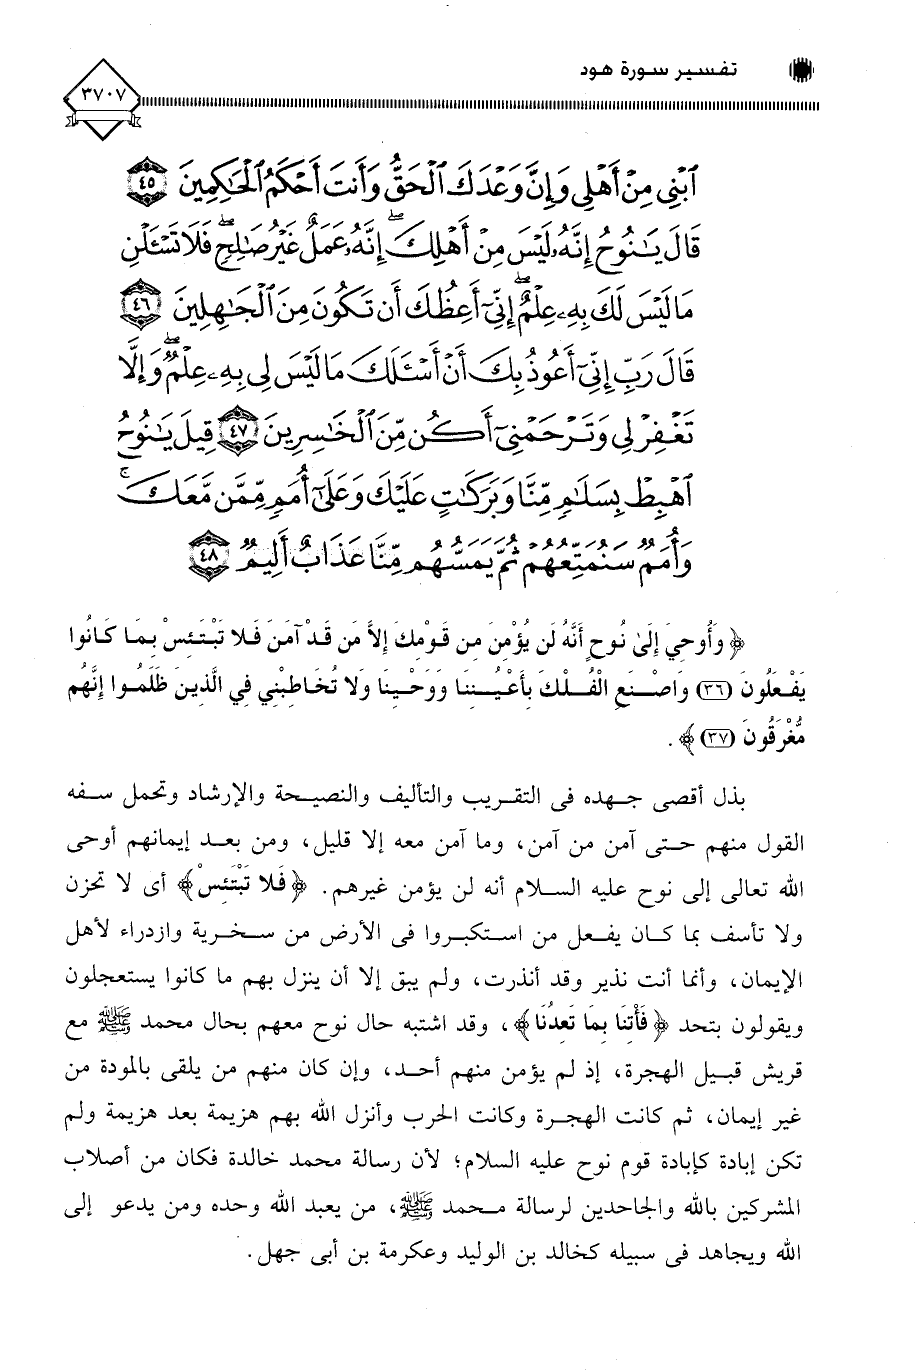 تفسير سورة هود
٣٧٠٧
ٱبْنِى مِنْ أَهْلِى وَإِنَّ وَعْدَكَ ٱلْحَقُّ وَأَنتَ أَحْكَمُ ٱلْحَٰكِمِينَ ٤٥
قَالَ يَٰنُوحُ إِنَّهُۥ لَيْسَ مِنْ أَهْلِكَ ۖ إِنَّهُۥ عَمَلٌ غَيْرُ صَٰلِحٍ ۖ فَلَا تَسْـَٔلْنِ
مَا لَيْسَ لَكَ بِهِۦ عِلْمٌ ۖ إِنِّىٓ أَعِظُكَ أَن تَكُونَ مِنَ ٱلْجَٰهِلِينَ ٤٦
قَالَ رَبِّ إِنِّىٓ أَعُوذُ بِكَ أَنْ أَسْـَٔلَكَ مَا لَيْسَ لِى بِهِۦ عِلْمٌ ۖ وَإِلَّا
تَغْفِرْ لِى وَتَرْحَمْنِىٓ أَكُن مِّنَ ٱلْخَٰسِرِينَ ٤٧ قِيلَ يَٰنُوحُ
ٱهْبِطْ بِسَلَٰمٍ مِّنَّا وَبَرَكَٰتٍ عَلَيْكَ وَعَلَىٰٓ أُمَمٍ مِّمَّن مَّعَكَ ۚ
وَأُمَمٌ سَنُمَتِّعُهُمْ ثُمَّ يَمَسُّهُم مِّنَّا عَذَابٌ أَلِيمٌ ٤٨
﴿ وَأُوحِيَ إِلَىٰ نُوحٍ أَنَّهُ لَن يُؤْمِنَ مِن قَوْمِكَ إِلاَّ مَن قَدْ آمَنَ فَلا تَبْتَئِسْ بِمَا كَانُوا
يَفْعَلُونَ (٣٦) وَاصْنَعِ الْفُلْكَ بِأَعْيُنِنَا وَوَحْيِنَا وَلا تُخَاطِبْنِي فِي الَّذِينَ ظَلَمُوا إِنَّهُم
مُّغْرَقُونَ (٣٧) ﴾ .
بذل أقصى جهده فى التقريب والتأليف والنصيحة والإرشاد وتحمل سفه
القول منهم حتى آمن من آمن، وما آمن معه إلا قليل، ومن بعد إيمانهم أوحى
الله تعالى إلى نوح عليه السلام أنه لن يؤمن غيرهم. ﴿ فَلا تَبْتَئِسْ ﴾ أى لا تحزن
ولا تأسف بما كان يفعل من استكبروا فى الأرض من سخرية وازدراء لأهل
الإيمان، وأنما أنت نذير وقد أنذرت، ولم يبق إلا أن ينزل بهم ما كانوا يستعجلون
ويقولون بتحد ﴿ فَأْتِنَا بِمَا تَعِدُنَا ﴾، وقد اشتبه حال نوح معهم بحال محمد ﷺ مع
قريش قبيل الهجرة، إذ لم يؤمن منهم أحد، وإن كان منهم من يلقى بالمودة من
غير إيمان، ثم كانت الهجرة وكانت الحرب وأنزل الله بهم هزيمة بعد هزيمة ولم
تكن إبادة كإبادة قوم نوح عليه السلام؛ لأن رسالة محمد خالدة فكان من أصلاب
المشركين بالله والجاحدين لرسالة محمد ﷺ، من يعبد الله وحده ومن يدعو إلى
الله ويجاهد فى سبيله كخالد بن الوليد وعكرمة بن أبى جهل.